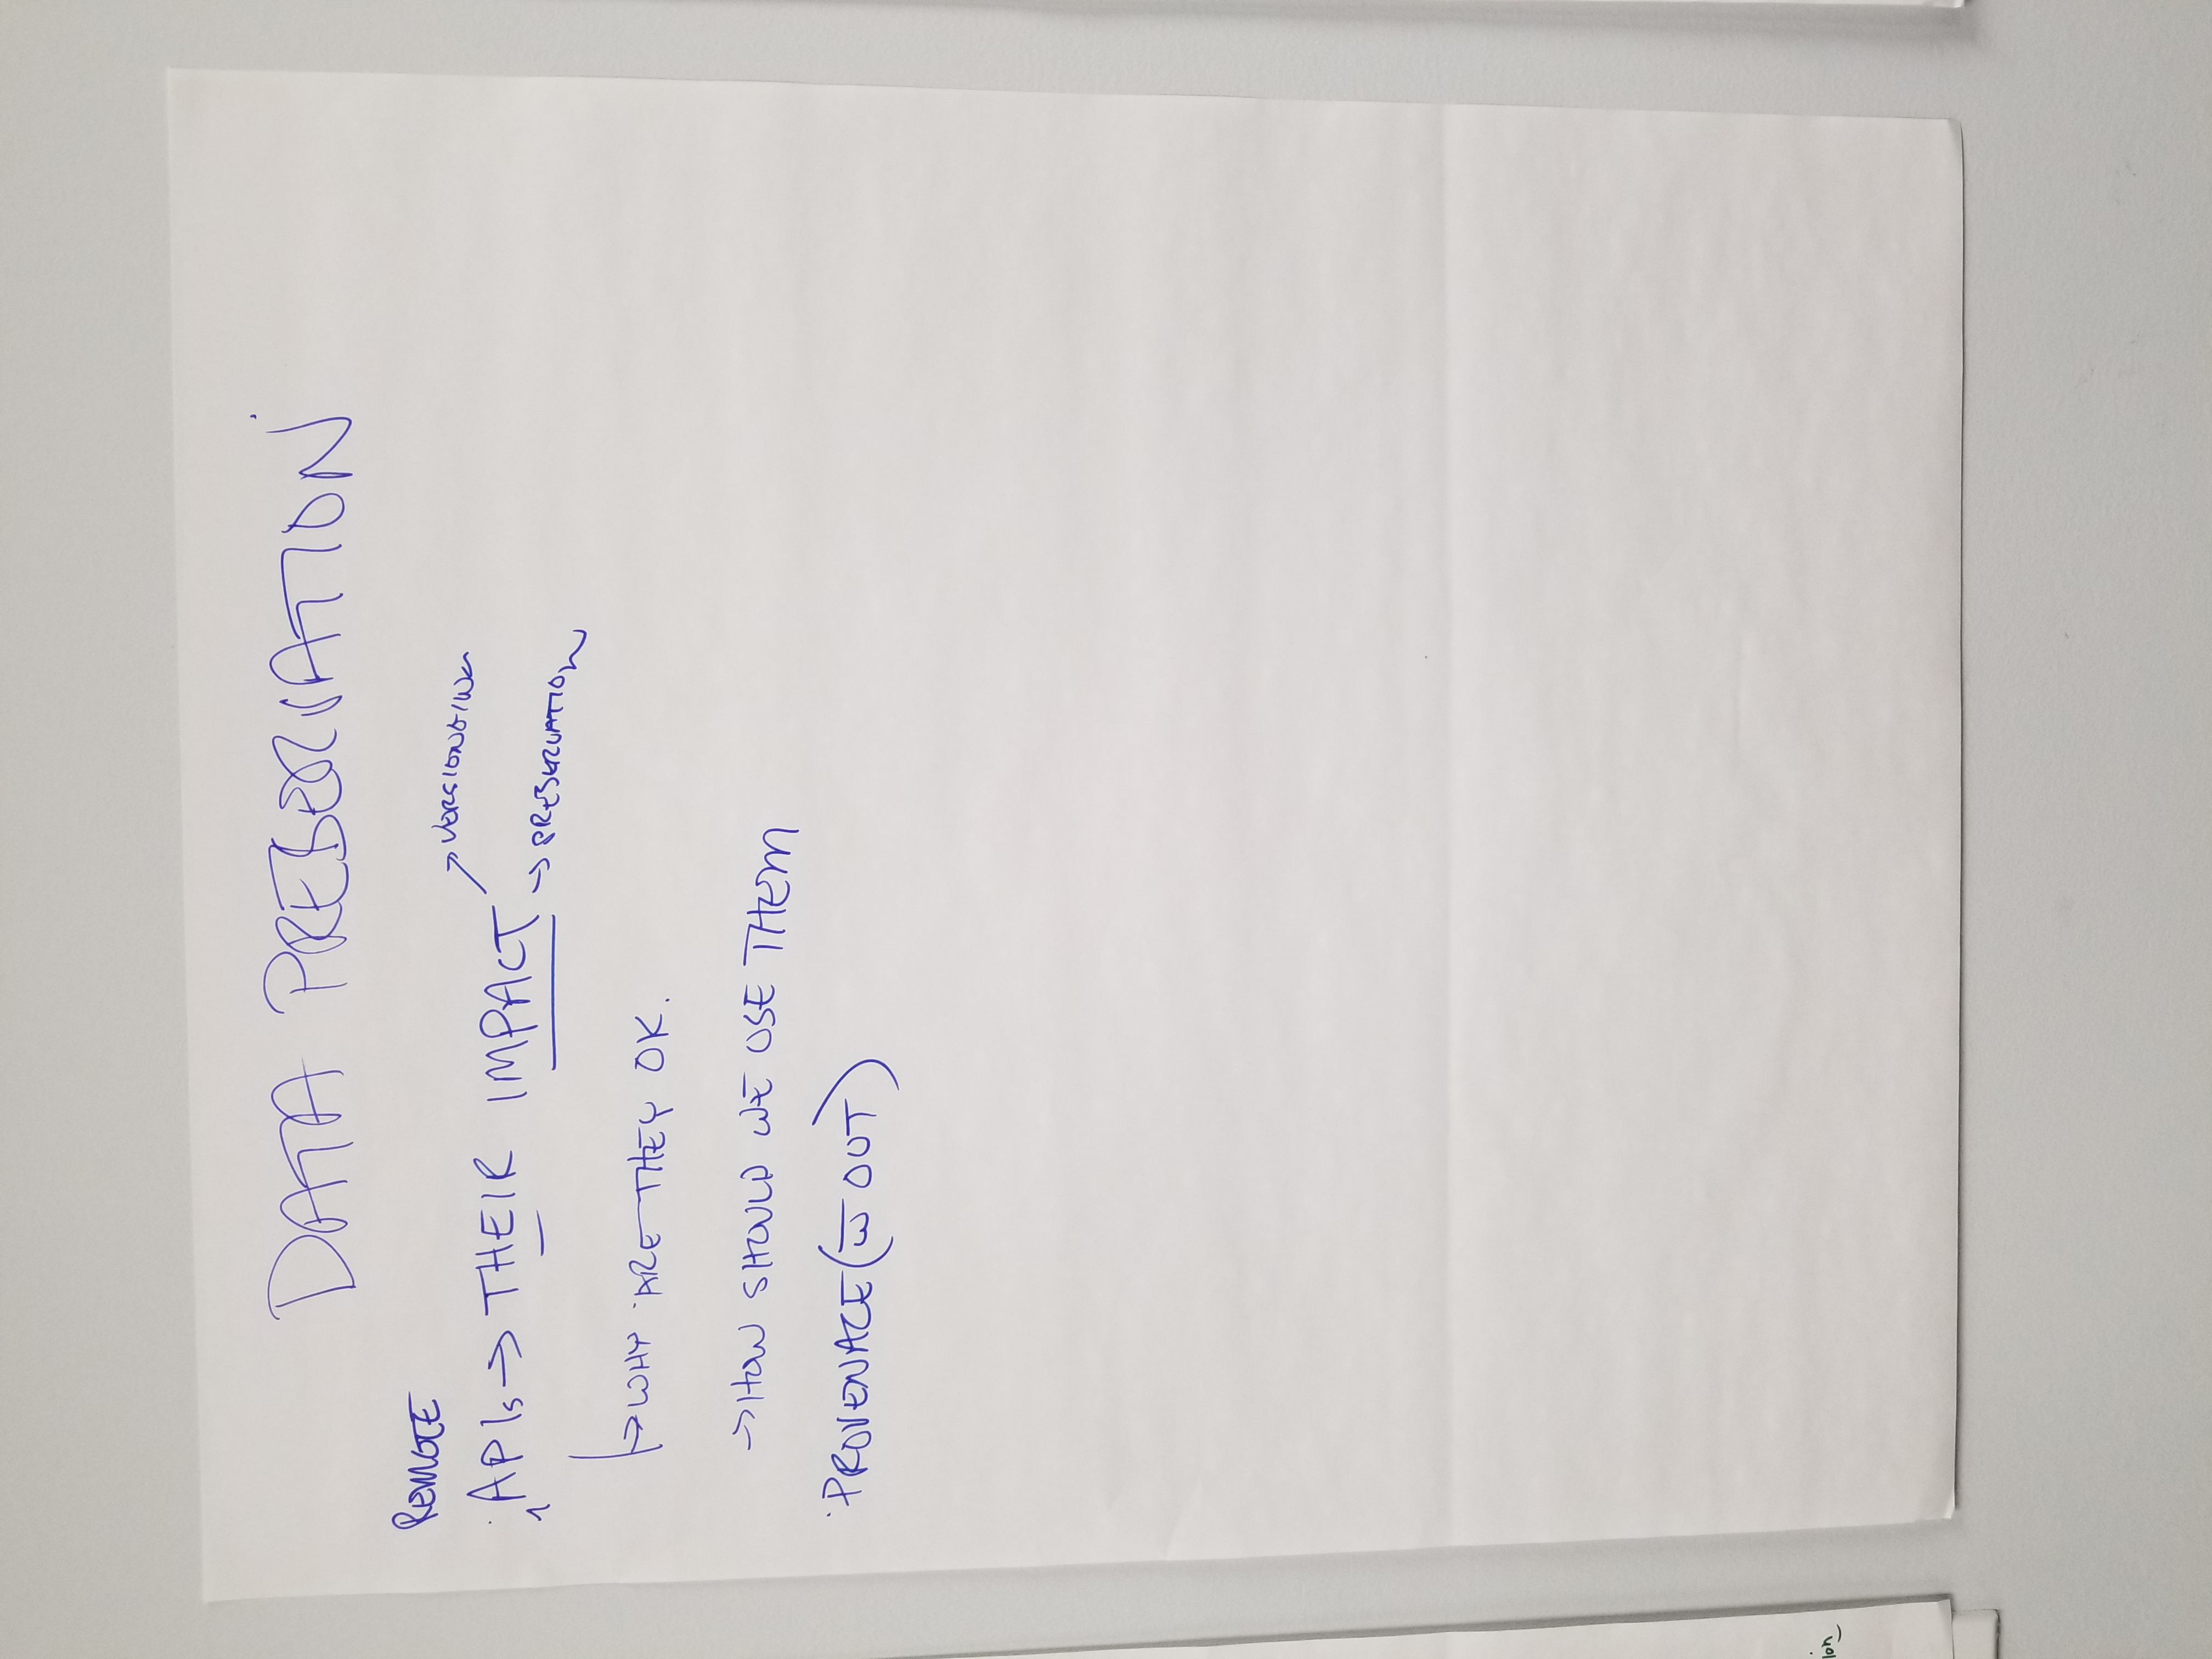 DATA PRESERVATION
REMOTE
APIs → THEIR IMPACT
→ VERSIONEING
→ PRESERVATION
→ WHY ARE THEY OK.
→ HOW SHOULD WE USE THEM
· PROVENACE (w̅ OUT)